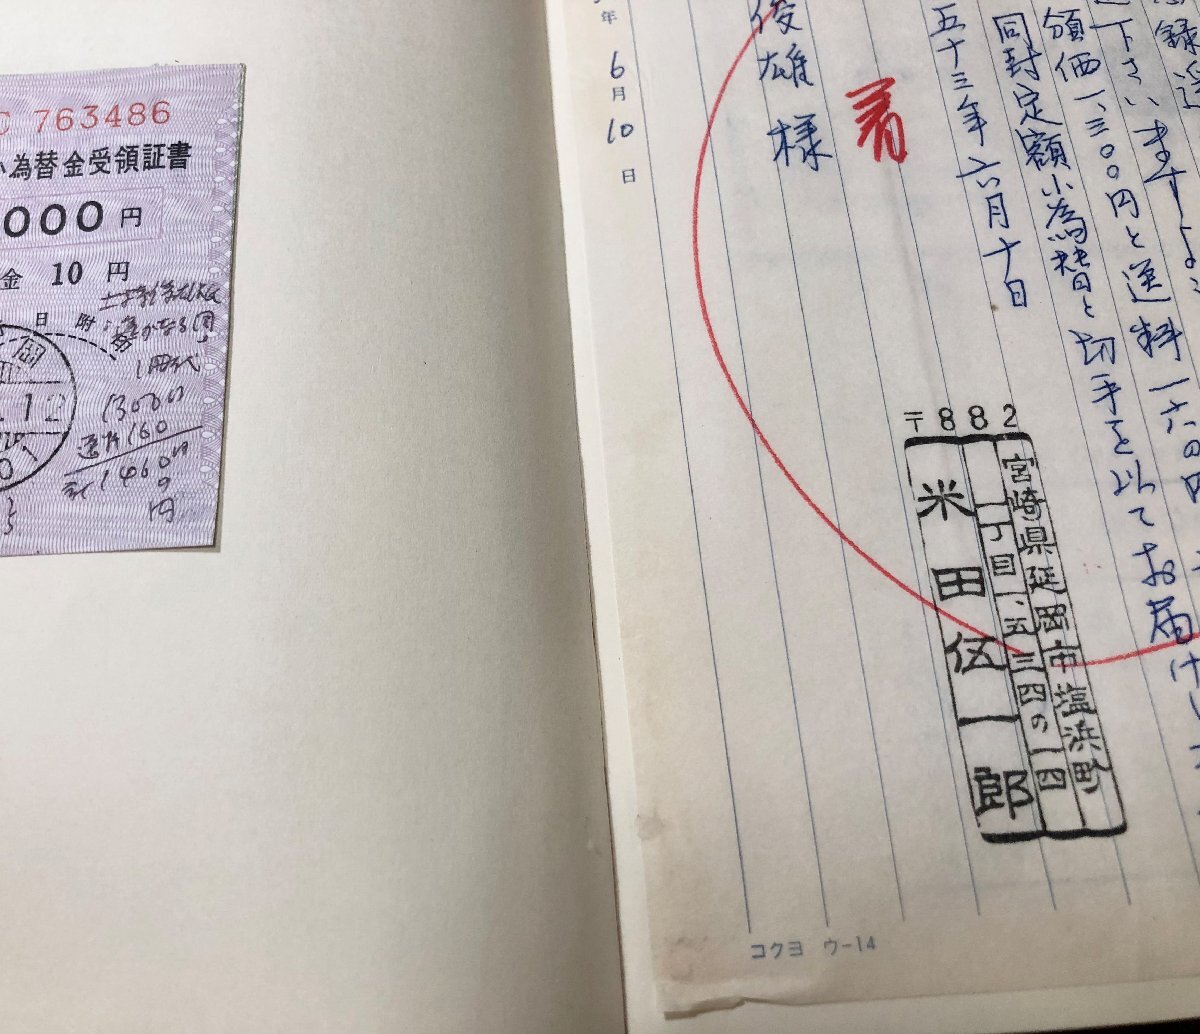 C 763486
小為替金受領証書
000円
金 10 円
日附
1冊代
1300円
送料 160
計 1460円
円
年6月10日
俊雄様
着
五十三年六月十日
同封定額小為替と切手を以てお届け
領価一、三〇〇円と送料一六〇円
下さいますよう
録送
〒882
宮崎県延岡市塩浜町
一丁目一、五三四の一四
米田伍一郎
コクヨ ウ-14